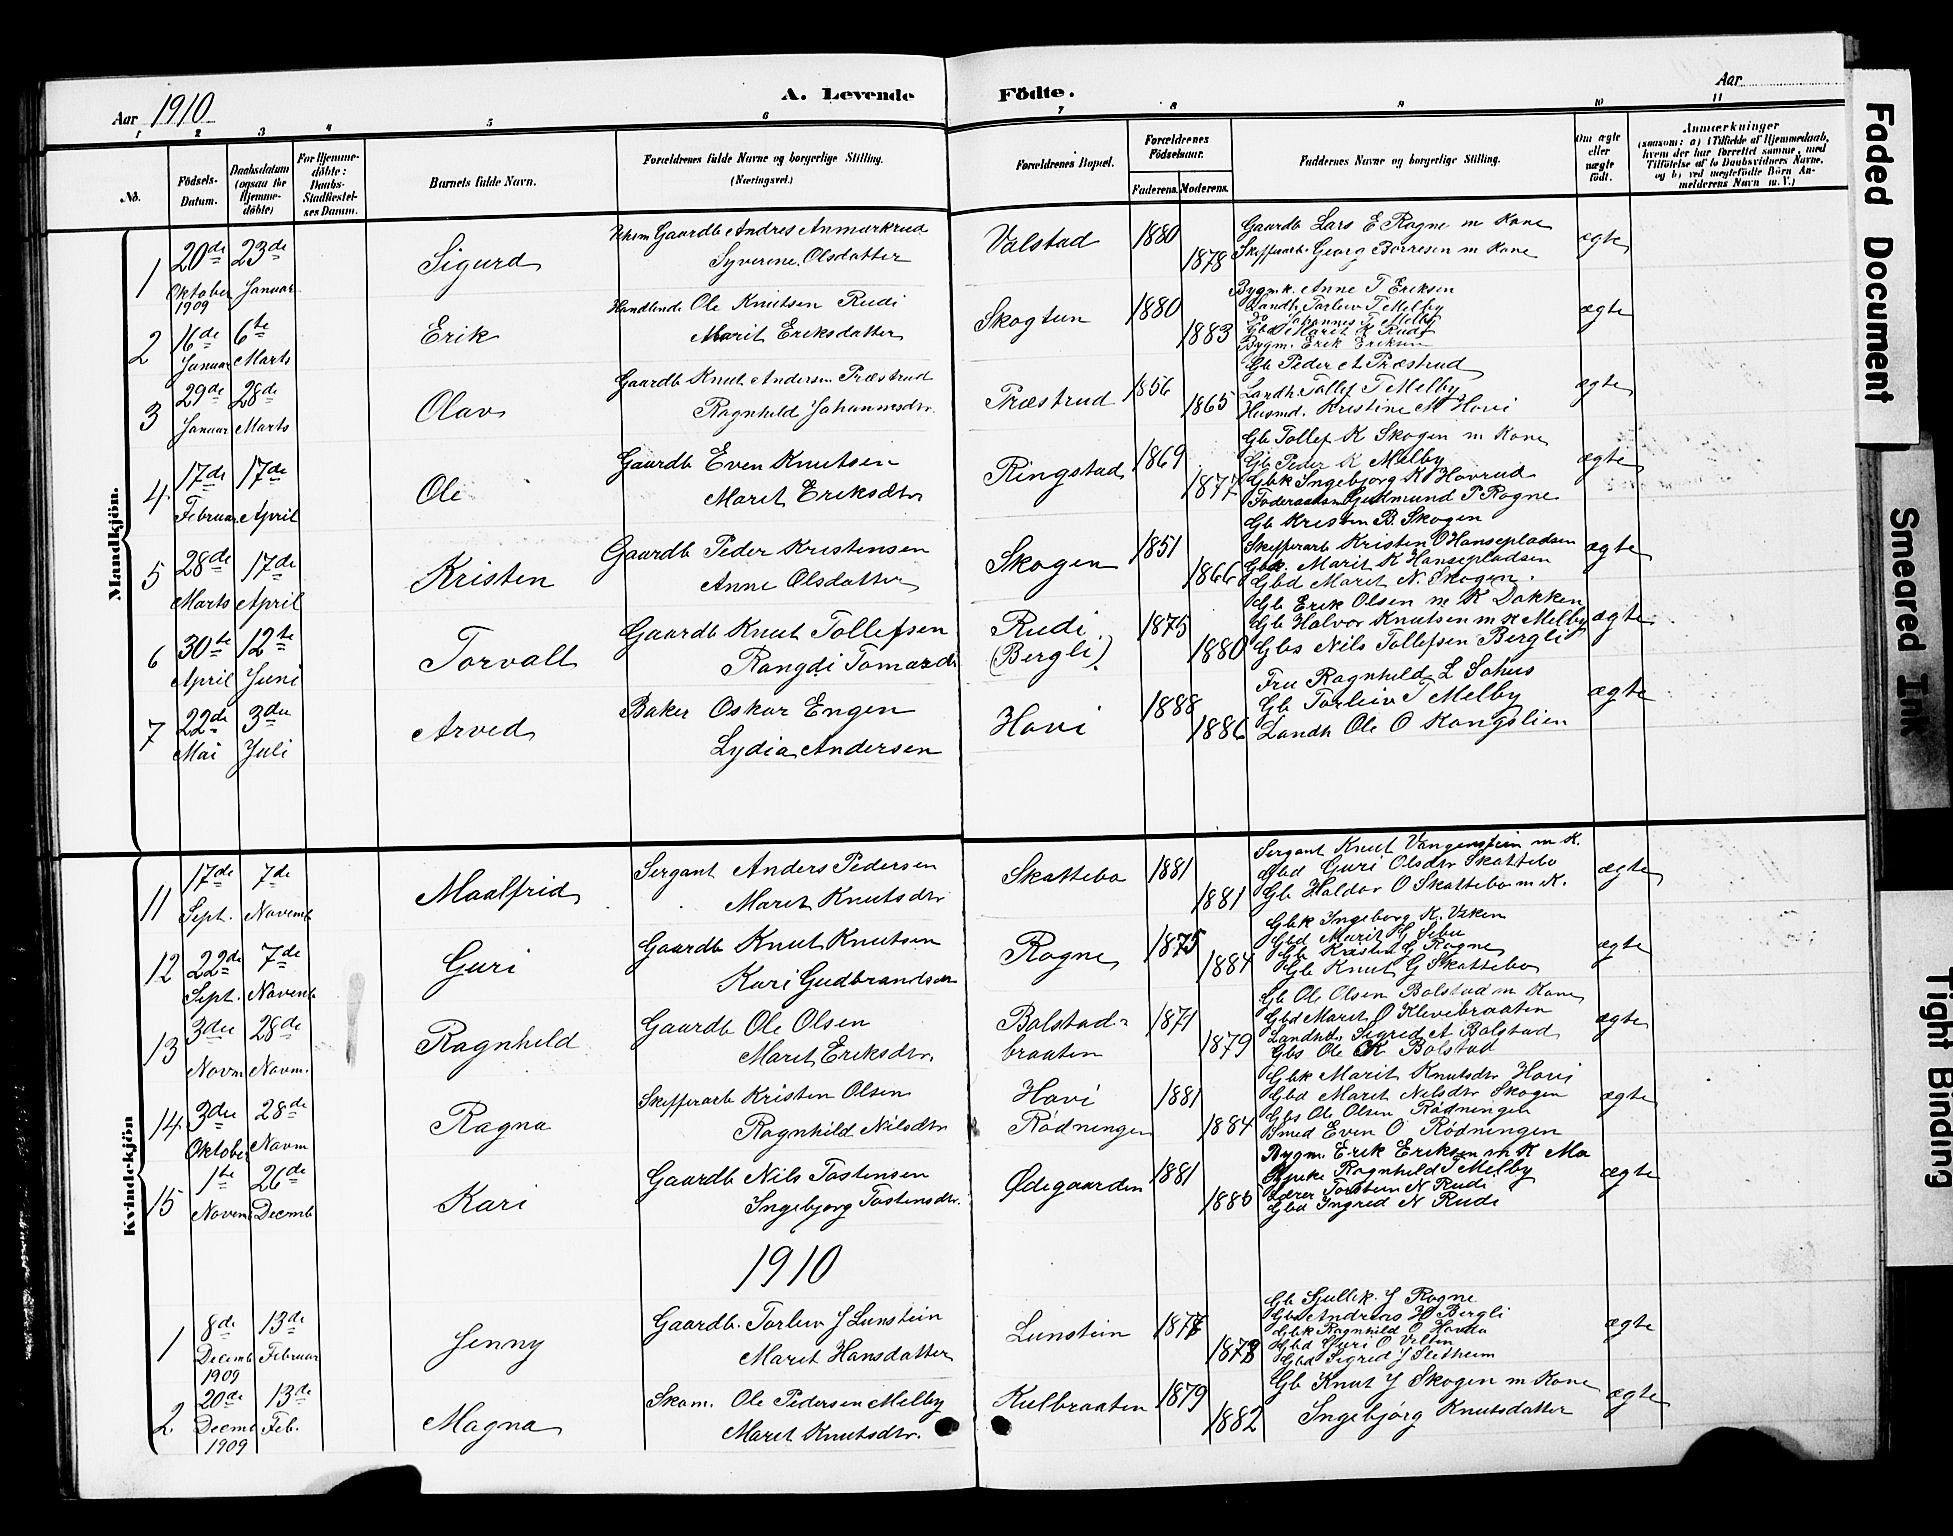 Aar 1910
A. Levende Födte.
Aar
1 2 3 4 5 6 7 8 9 10 11
No.
Födsels-Datum.
Daabsdatum (ogsaa for Hjemme-döbte)
For Hjemme-döbte: Daabs-Stadfæstel-ses Datum.
Barnets fulde Navn.
Forældrenes fulde Navne og borgerlige Stilling. (Næringsvei.)
Forældrenes Bopæl.
Forældrenes Födselsaar.
Faderens. Moderens.
Faddernes Navne og borgerlige Stilling.
Om ægte eller uægte födt.
Anmærkninger
(saasom: a) i Tilfælde af Hjemmedaab, hvem der har forrettet samme, med Tilföielse af to Daabsvidners Navne, og b) ved uægtefödte Börn An-melderens Navn m. V.)
Mandkjön.
1 20de Oktober 1909 23de Januar Sigurd
Gaardb Andres Anmarkrud
Syverine Olsdatter
Valstad 1880 1878
Gaardb Lars E Rogne m Kone
Skifferarb. Georg Børresen m Kone
ægte
2 16de Januar 6te Marts Erik
Handlende Ole Knutsen Rudi
Marit Eriksdatter
Skogtun 1880 1883
Bygmk. Anne T Eriksen
Landh. Torleiv T Melby
Do Johannes T Melby
Gbd Marit K Rudi
Bygm. Erik Eriksen
ægte
3 29de Januar 28de Marts Olav
Gaardb Knut Andersen Præstrud
Ragnhild Johannesdtr.
Præstrud 1856 1865
Gb Peder A Præstrud
Landh. Tollef T Melby
Husmd. Kristine M Hovi
ægte
4 17de Februar 17de April Ole
Gaardb Even Knutsen
Marit Eriksdtr
Ringstad 1869 1877
Gb Tollef K Skogen m Kone
Gb Peder K Melby
Gbk Ingebjørg K Hovrud
Føderaadsm Gudmund P Rogne
ægte
5 28de Marts 17de April Kristen
Gaardb Peder Kristensen
Anne Olsdatter
Skogen 1851 1866
Gb Kristen B. Skogen
Skifferarb Kristen O Hansepladsen
Gbk. Marit K Hansepladsen
Gbd Marit N. Skogen.
ægte
6 30te April 12te Juni Torvall
Gaardb Knut Tollefsen
Rangdi Tomasdr
Rudi (Bergli). 1875 1880
Gb Erik Olsen m K Dokken
Gb Halvor Knutsen m K Melby
Gbs Nils Tollefsen Bergli
ægte
7 22de Mai 3die Juli Arved
Baker Oskar Engen
Lydia Andersen
Hovi 1888 1886
Fru Ragnhild L Sohus
Gb Torleiv T Melby
Landh Ole O Kongslien
ægte
Kvindekjön
11 17de Sept. 7de Novemb Maalfrid
Sergant Anders Pedersen
Marit Knutsdtr
Skattebo 1881 1881
Sergant Knut Vangenstein m K.
Gbd Guri Olsdtr Skattebo
Gb Haldor O Skattebo m K.
ægte
12 22de Sept. 7de Novemb Guri
Gaardb Knut Knutsen
Kari Gudbrandsdtr
Rogne 1875 1884
Gbk Ingeborg K. Viken
Gbd Marit G Sebu
Gb Kristen G Rogne
Gb Knut G Skattebo
ægte
13 3die Novm 28de Novm. Ragnhild
Gaardb Ole Olsen
Marit Eriksdtr.
Bolstad-braaten 1871 1879
Gb Ole Olsen Bolstad m Kone
Gbd Marit O Klevebraaten
Landhb. Sigrid A Bolstad
Gbs Ole K Bolstad
ægte
14 3die Oktober 28de Novm Ragna
Skifferarb Kristen Olsen
Ragnhild Nilsdtr
Hovi Rødningen 1881 1884
Gbk Marit Knutsdtr Hovi
Gbd Marit Nilsdtr Skogen
Gbs Ole Olsen Rødningen
Smed Even O Rødningen
ægte
15 1te Novem 26de Decmb Kari
Gaardb Nils Tostensen
Ingebjørg Tostensdtr.
Ødegaarden 1881 1885
Bygm. Erik Eriksen m K Mo
Ragnhild T Melby
Lærer Torstein N Rudi
Gbd Ingrid N Rudi
ægte
1910
1 8de Decemb 1909 13de Februar Jenny
Gaardb. Torleiv J Lunstein
Marit Hansdatter
Lunstein 1877 1878
Gb Sjullik J Rogne
Gbs Andreas H Bergli
Gbk Ragnhild O Hovda
Gbd Guri O Velten
Gbd Sigrid J Seitheim
ægte
2 20de Decmb 1909 13de Feb. Magna
Skom. Ole Pedersen Melby
Marit Knutsdtr.
Kulbraaten 1879 1882
Gb Knut J Skogen m Kone
Ingebjørg Knutsdatter
ægte
Faded Document
Smeared Ink
Tight Binding